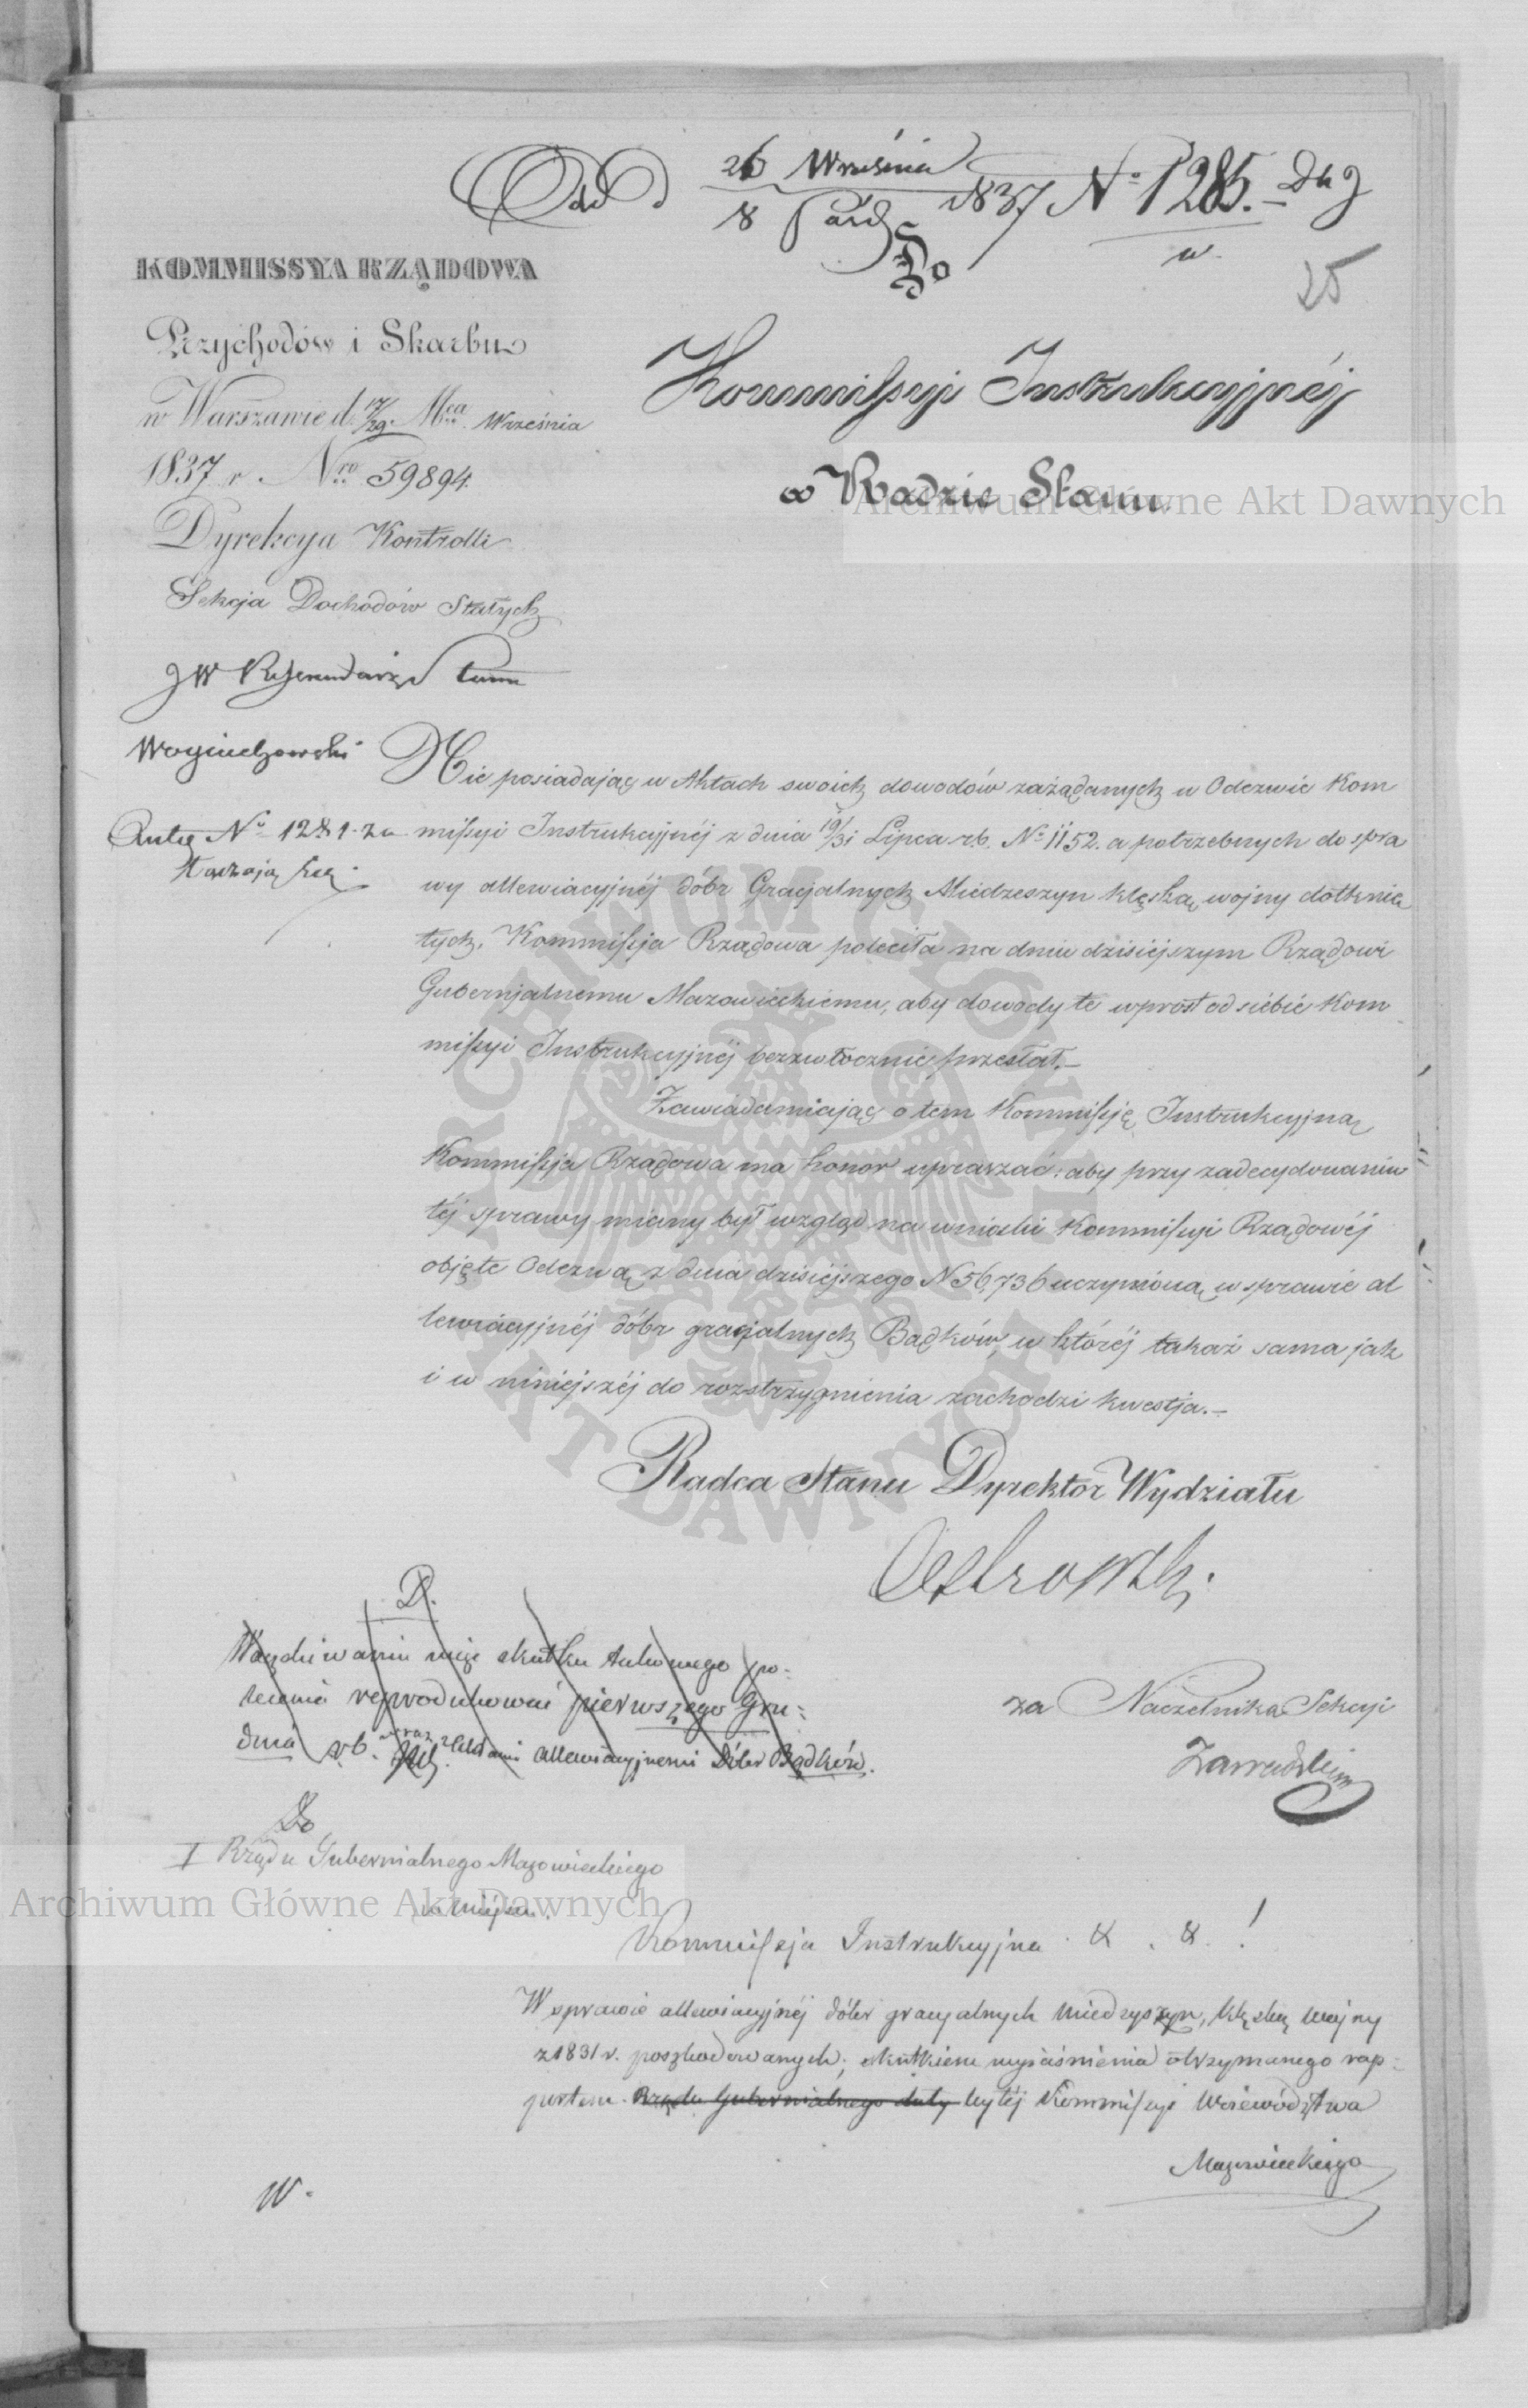 Odd 26 Września
8 Paźd 1837 No 1285.
w.
25
KOMMISSYA RZĄDOWA
Przychodów i Skarbu
w Warszawie d. 17/29 Mca Września
1837 r. Nro 59894.
Dyrekcya Kontrolli
Sekcja Dochodów Stałych
JW Referendarz Stanu
Woyciechowski
Do
Kommissyi Instrukcyjnéj
w Radzie Stanu
Akta No 1281
Nie posiadając w Aktach swoich dowodów zażądanych w Odezwie Kom
missyi Instrukcyjnéj z dnia 19/31 Lipca rb. No 1152. a potrzebnych do spra
wy allewiacyjnéj dóbr Gracjalnych Miedzeszyn klęską wojny dotknię
tych, Kommissja Rządowa poleciła na dniu dzisiéjszym Rządowi
Gubernjalnemu Mazowieckiemu, aby dowody te wprost od siebie Kom
missyi Instrukcyjnéj bezzwłocznie przesłał.—
Zawiadamiając o tem Kommissję Instrukcyjną
Kommissja Rządowa ma honor upraszać: aby przy zadecydowaniu
téj sprawy miany był wzgląd na wnioski Kommissyi Rządowéj
objęte Odezwą z dnia dzisiéjszego N 56,736 uczynioną w sprawie al
lewiacyjnéj dóbr gracjalnych Bądków, w któréj takaż sama jak
i w niniejszéj do rozstrzygnienia zachodzi kwestja.—
Radca Stanu Dyrektor Wydziału
Ostrowski.
D.
W oczekiwaniu więc skutku takowego po=
lecenia reprodukować pierwszego Gru=
dnia rb. wraz z aktami allewiacyjnemi Dóbr Bądków.
za Naczelnika Sekcyi
Zawadzki
Do
I Rządu Gubernialnego Mazowieckiego
w miejscu.
Kommissja Instrukcyjna & . & . !
W sprawie allewiacyjnéj dóbr gracyalnych Miedzyszyn, klęską wojny
z 1831 r. poszkodowanych; skutkiem wyjaśnienia otrzymanego rap=
portem Rządu Gubernialnego daty byłéj Kommissyi Województwa
Mazowieckiego
W.
Archiwum Główne Akt Dawnych
Archiwum Główne Akt Dawnych
ARCHIWUM GŁÓWNE
AKT DAWNYCH